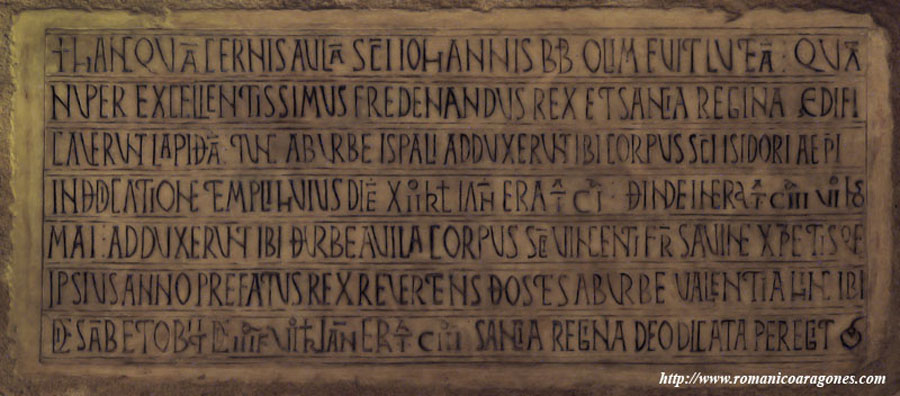 + HANC QUĀ CERNIS AULĀ SCĪ IOHANNIS BB OLIM FUIT LUTEĀ : QUĀ
NUPER EXCELLENTISSIMUS FREDENANDUS REX ET SANCIA REGINA EDIFI
CAVERUNT LAPIDEĀ : TUNC AB URBE ISPALI ADDUXERUNT IBI CORPUS SCĪ ISIDORI AEPI
IN DEDICATIONE TEMPLI HUIUS DIĒ XII KL IAN ERA T C I : DEINDE IN ERA T C III VI ID
MAI : ADDUXERUNT IBI DE URBE AVILA CORPUS SCĪ VINCENTI FR SAVINE XPETISQE
IPSIUS ANNO PREFATUS REX REVERTENS DE OSTES AB URBE VALENTIA HINC IBI
DIE SABB ET OBIIT DIE III F VI KL IAN ERA T C III SANCIA REGINA DEO DICATA PEREGIT
http://www.romanicoaragones.com